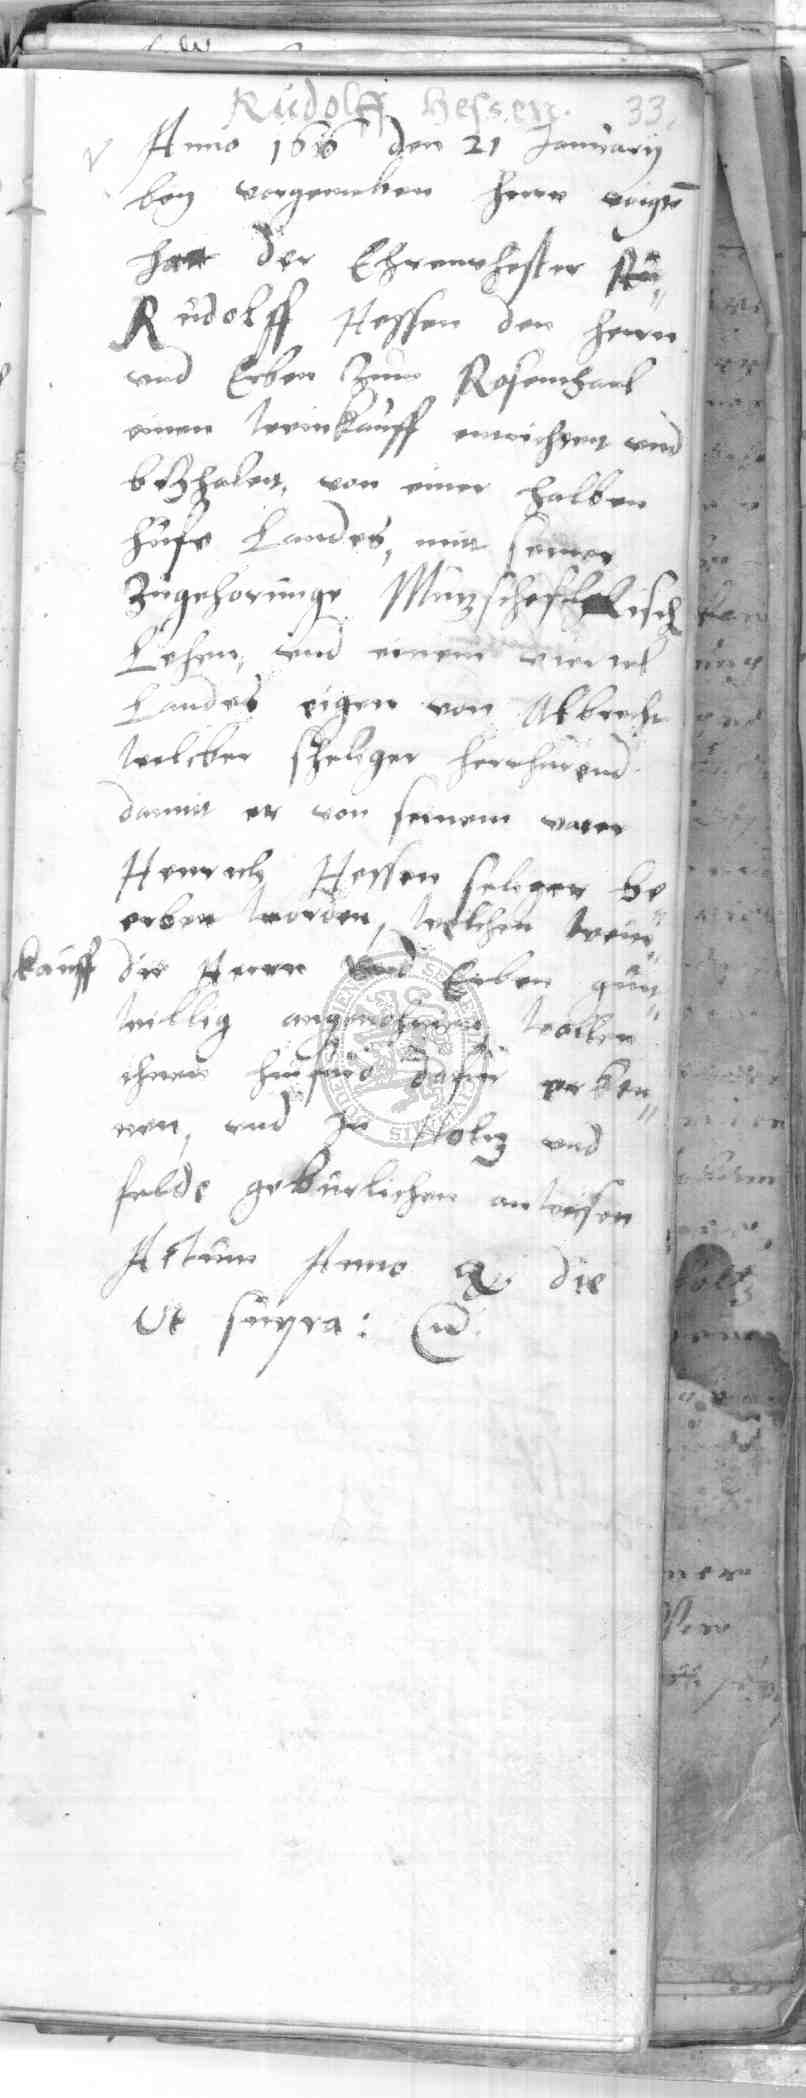 Rudolff Hessen. 33.
Anno 1616 den 21 Januarij
beÿ vorgemelten Herrn voigte
hatt der Ehrenvhester
Rudolff Hessen den herrn
vnd Erben zum Rosenthael
einen weinkauff entrichtett vnd
bezhalett, von einer halben
hufe Landes, mitt seiner
Zugehorunge Muntzscheflelisch
Lehen, vnd einem viertel
Landes eigen von Albrecht
welcker sheliger herrhurend
damitt er von seinem vater
Henrich Hessen seliger be
erbet worden, welchen wein„
kauff die Herrn vnd Erben gut„
willig angenohmen, wollen
ihnen hinfuro dafur erken„
nen, vnd zu Holtz vnd
felde geburlichen anweisen
Actum Anno & die
Ut supra: